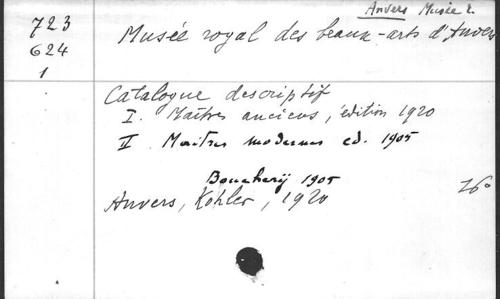 Anvers Musée r.
723
624
1
Musée royal des beaux-arts d'Anvers
Catalogue descriptif
I. Maîtres anciens, édition 1920
II Maitres modernes ed. 1905
Boucherij 1905
Anvers, Kohler, 1920
16°